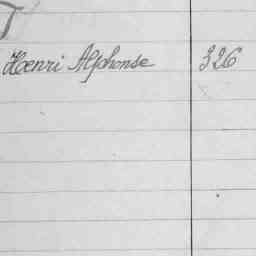 Henri Alphonse 326